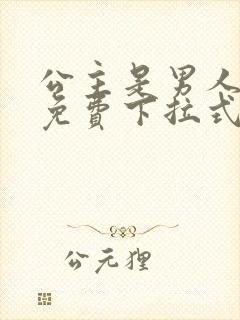 公主是男人
免費下拉式
公元狸